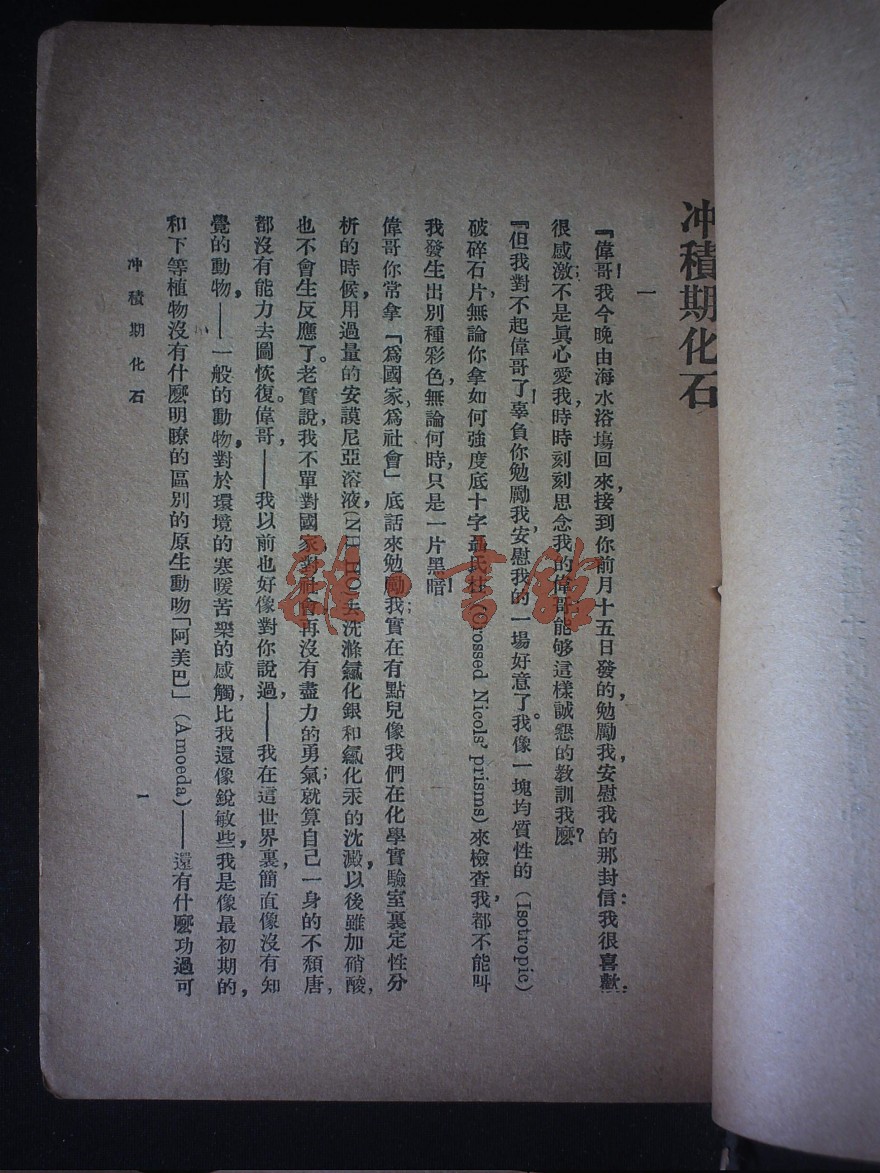 冲積期化石
一
『偉哥！我今晚由海水浴塲回來，接到你前月十五日發的勉勵我，安慰我的那封信；我很喜歡；
很感激；不是眞心愛我，時時刻刻思念我的偉哥能够這樣誠懇的敎訓我麽？
『但我對不起偉哥了！辜負你勉勵我，安慰我的一塲好意了。我像一塊均質性的(Isotropic)
破碎石片，無論你拿如何強度底十字聶氏柱(Crossed Nicols' prisms)來檢查我，都不能叫
我發生出別種彩色，無論何時，只是一片黑暗！
偉哥你常拿「爲國家，爲社會」底話來勉勵我；實在有點兒像我們在化學實驗室裏定性分
析的時候，用過量的安謨尼亞溶液(NH HO)去洗滌氯化銀和氯化汞的沈澱，以後雖加硝酸，
也不會生反應了。老實說，我不單對國家對社會再沒有盡力的勇氣；就算自己一身的不頹唐，
都沒有能力去圖恢復。偉哥，——我以前也好像對你說過，——我在這世界裏，簡直像沒有知
覺的動物，——一般的動物，對於環境的寒暖苦樂的感觸，比我還像銳敏些，我是像最初期的，
和下等植物沒有什麽明瞭的區別的原生動吻「阿美巴」(Amoeda)——還有什麽功過可
冲積期化石
1
雜·書館